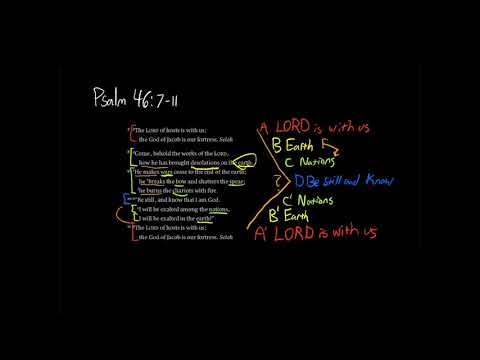 Psalm 46:7-11
7 The LORD of hosts is with us;
the God of Jacob is our fortress. Selah
8 Come, behold the works of the LORD,
how he has brought desolations on the earth.
9 He makes wars cease to the end of the earth;
he breaks the bow and shatters the spear;
he burns the chariots with fire.
"Be still, and know that I am God.
I will be exalted among the nations,
I will be exalted in the earth!"
The LORD of hosts is with us;
the God of Jacob is our fortress. Selah
A LORD is with us
B Earth
C Nations
? D Be still and Know
C' Nations
B' Earth
A' LORD is with us